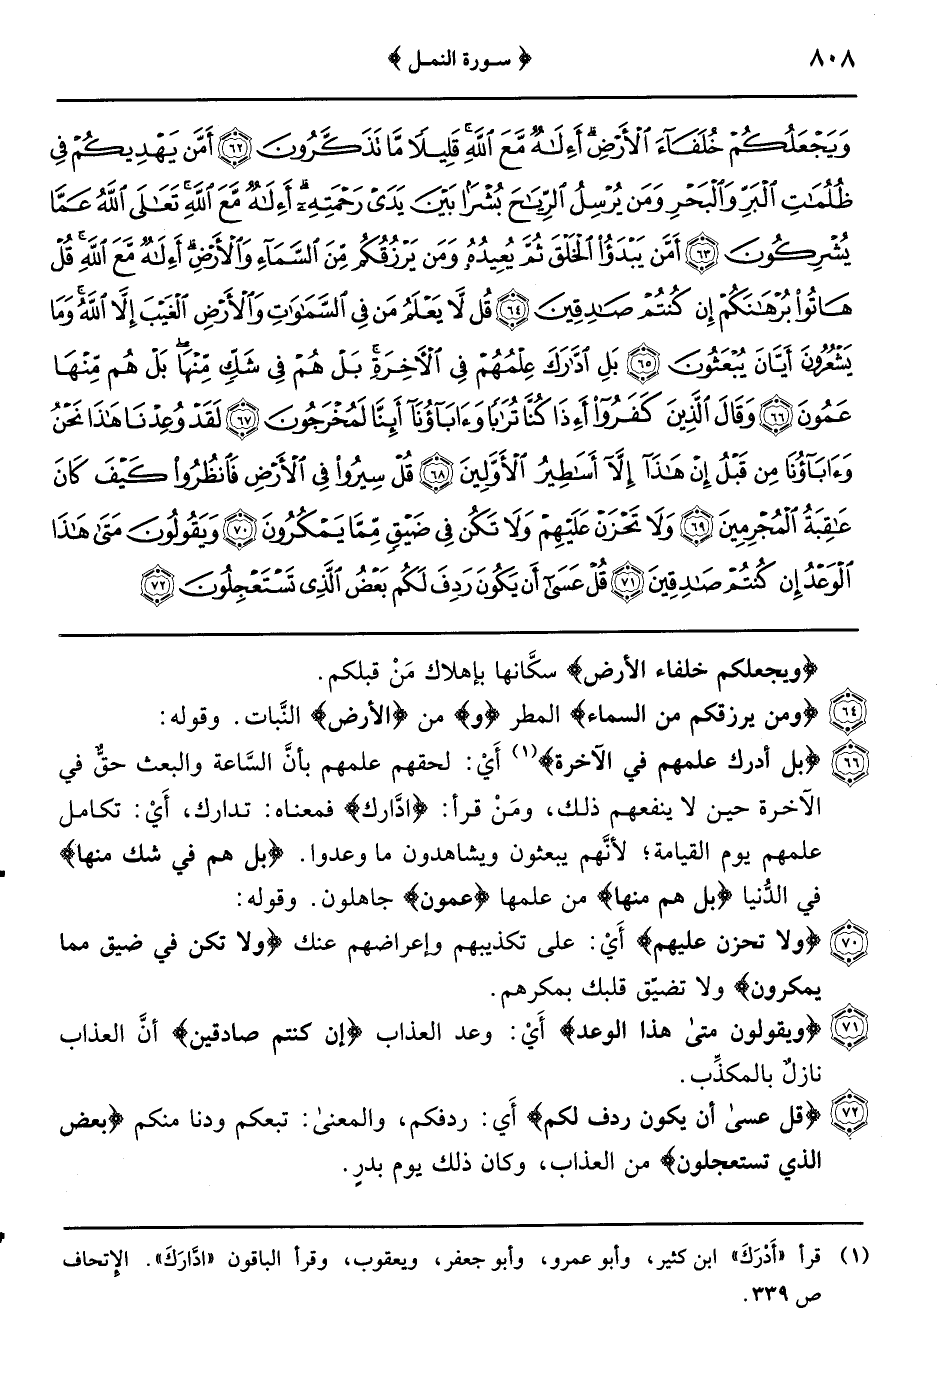 ٨٠٨ ﴿ سورة النمل ﴾
وَيَجْعَلُكُمْ خُلَفَاءَ ٱلْأَرْضِ ۗ أَءِلَـٰهٌ مَّعَ ٱللَّهِ ۚ قَلِيلًا مَّا تَذَكَّرُونَ ﴿٦٢﴾ أَمَّن يَهْدِيكُمْ فِى
ظُلُمَـٰتِ ٱلْبَرِّ وَٱلْبَحْرِ وَمَن يُرْسِلُ ٱلرِّيَـٰحَ بُشْرًۢا بَيْنَ يَدَىْ رَحْمَتِهِۦٓ ۗ أَءِلَـٰهٌ مَّعَ ٱللَّهِ ۚ تَعَـٰلَى ٱللَّهُ عَمَّا
يُشْرِكُونَ ﴿٦٣﴾ أَمَّن يَبْدَؤُا۟ ٱلْخَلْقَ ثُمَّ يُعِيدُهُۥ وَمَن يَرْزُقُكُم مِّنَ ٱلسَّمَآءِ وَٱلْأَرْضِ ۗ أَءِلَـٰهٌ مَّعَ ٱللَّهِ ۚ قُلْ
هَاتُوا۟ بُرْهَـٰنَكُمْ إِن كُنتُمْ صَـٰدِقِينَ ﴿٦٤﴾ قُل لَّا يَعْلَمُ مَن فِى ٱلسَّمَـٰوَٰتِ وَٱلْأَرْضِ ٱلْغَيْبَ إِلَّا ٱللَّهُ ۚ وَمَا
يَشْعُرُونَ أَيَّانَ يُبْعَثُونَ ﴿٦٥﴾ بَلِ ٱدَّٰرَكَ عِلْمُهُمْ فِى ٱلْـَٔاخِرَةِ ۚ بَلْ هُمْ فِى شَكٍّ مِّنْهَا ۖ بَلْ هُم مِّنْهَا
عَمُونَ ﴿٦٦﴾ وَقَالَ ٱلَّذِينَ كَفَرُوٓا۟ أَءِذَا كُنَّا تُرَٰبًا وَءَابَآؤُنَآ أَئِنَّا لَمُخْرَجُونَ ﴿٦٧﴾ لَقَدْ وُعِدْنَا هَـٰذَا نَحْنُ
وَءَابَآؤُنَا مِن قَبْلُ إِنْ هَـٰذَآ إِلَّآ أَسَـٰطِيرُ ٱلْأَوَّلِينَ ﴿٦٨﴾ قُلْ سِيرُوا۟ فِى ٱلْأَرْضِ فَٱنظُرُوا۟ كَيْفَ كَانَ
عَـٰقِبَةُ ٱلْمُجْرِمِينَ ﴿٦٩﴾ وَلَا تَحْزَنْ عَلَيْهِمْ وَلَا تَكُن فِى ضَيْقٍ مِّمَّا يَمْكُرُونَ ﴿٧٠﴾ وَيَقُولُونَ مَتَىٰ هَـٰذَا
ٱلْوَعْدُ إِن كُنتُمْ صَـٰدِقِينَ ﴿٧١﴾ قُلْ عَسَىٰٓ أَن يَكُونَ رَدِفَ لَكُم بَعْضُ ٱلَّذِى تَسْتَعْجِلُونَ ﴿٧٢﴾
﴿ويجعلكم خلفاء الأرض﴾ سكَّانها بإهلاك مَنْ قبلكم.
﴿٦٤﴾ ﴿ومن يرزقكم من السماء﴾ المطر ﴿و﴾ من ﴿الأرض﴾ النَّبات. وقوله:
﴿٦٦﴾ ﴿بل أدرك علمهم في الآخرة﴾(١) أَيْ: لحقهم علمهم بأنَّ السَّاعة والبعث حقٌّ في
الآخرة حين لا ينفعهم ذلك، ومَنْ قرأ: ﴿ادَّارك﴾ فمعناه: تدارك، أَيْ: تكامل
علمهم يوم القيامة؛ لأنَّهم يبعثون ويشاهدون ما وعدوا. ﴿بل هم في شك منها﴾
في الدُّنيا ﴿بل هم منها﴾ من علمها ﴿عمون﴾ جاهلون. وقوله:
﴿٧٠﴾ ﴿ولا تحزن عليهم﴾ أَيْ: على تكذيبهم وإعراضهم عنك ﴿ولا تكن في ضيق مما
يمكرون﴾ ولا تضيّق قلبك بمكرهم.
﴿٧١﴾ ﴿ويقولون متىٰ هذا الوعد﴾ أَيْ: وعد العذاب ﴿إن كنتم صادقين﴾ أنَّ العذاب
نازلٌ بالمكذِّب.
﴿٧٢﴾ ﴿قل عسىٰ أن يكون ردف لكم﴾ أَي: ردفكم، والمعنىٰ: تبعكم ودنا منكم ﴿بعض
الذي تستعجلون﴾ من العذاب، وكان ذلك يوم بدرٍ.
(١) قرأ «أَدْرَكَ» ابن كثير، وأبو عمرو، وأبو جعفر، ويعقوب، وقرأ الباقون «ادَّارَكَ». الإتحاف
ص ٣٣٩.